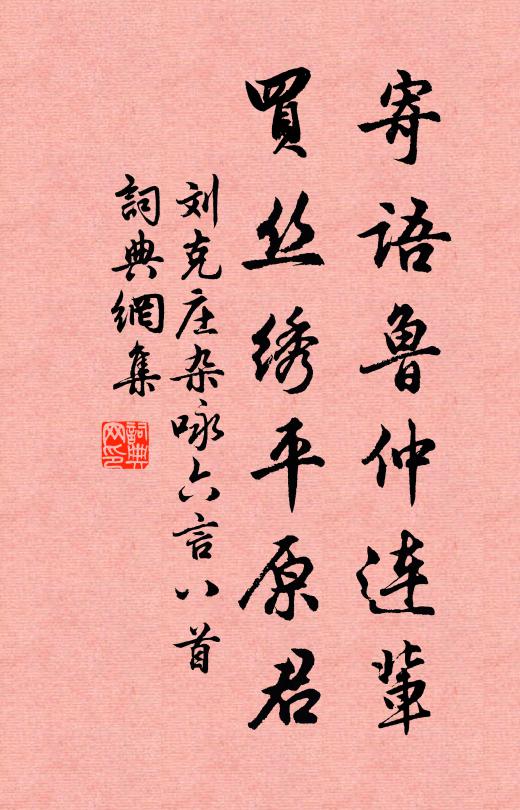 寄语魯仲連輩
買丝绣平原君
刘克庄杂咏六言八首
詞典網集
詞典网印